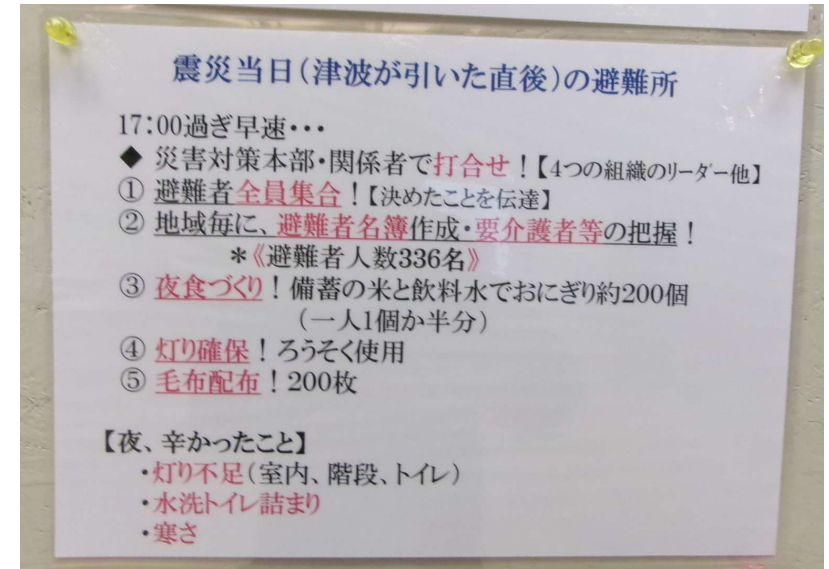 震災当日(津波が引いた直後)の避難所
17:00過ぎ早速・・・
◆ 災害対策本部・関係者で打合せ!【4つの組織のリーダー他】
① 避難者全員集合!【決めたことを伝達】
② 地域毎に、避難者名簿作成・要介護者等の把握!
＊《避難者人数336名》
③ 夜食づくり!備蓄の米と飲料水でおにぎり約200個
(一人1個か半分)
④ 灯り確保!ろうそく使用
⑤ 毛布配布!200枚
【夜、辛かったこと】
・灯り不足(室内、階段、トイレ)
・水洗トイレ詰まり
・寒さ